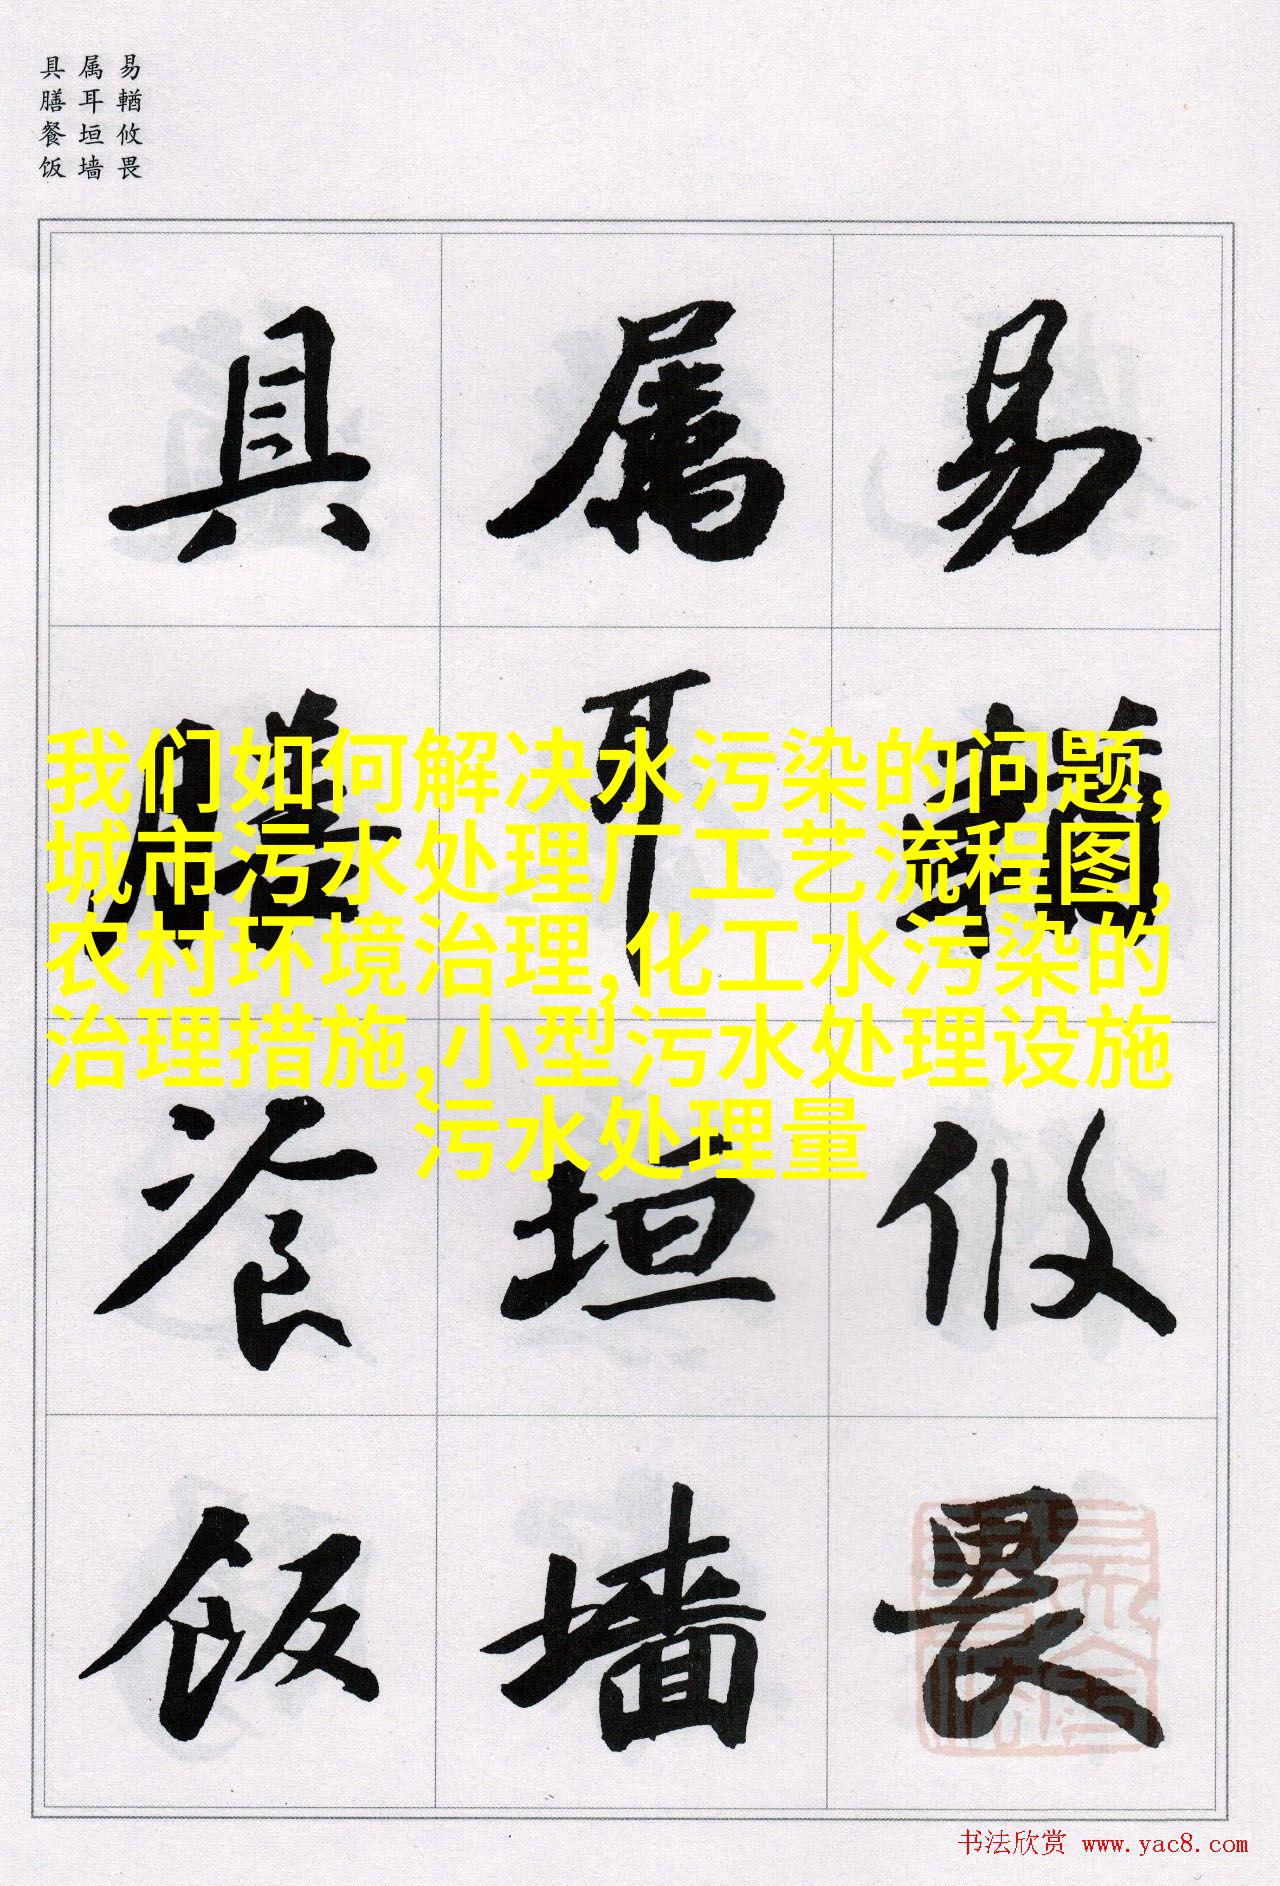 易輶攸畏
属耳垣墙
具膳餐饭
易輶攸畏
属耳垣墙
具膳餐饭
我们如何解决水污染的问题,
城市污水处理厂工艺流程图,
农村环境治理,化工水污染的
治理措施,小型污水处理设施
污水处理量
书法欣赏 www.yac8.com